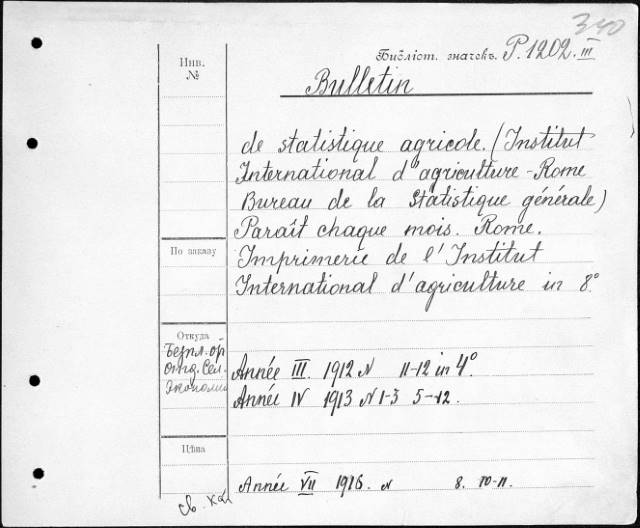 340
Библіот. значекъ. P. 1202. III
Инв.
№
Bulletin
de statistique agricole. (Institut
International d'agriculture - Rome
Bureau de la Statistique générale)
Paraît chaque mois. Rome.
По заказу
Imprimerie de l'Institut
International d'agriculture in 8°
Откуда
Безпл. от
отд. Сел.
Экономии
Année III. 1912 N 11-12 in 4°
Année IV 1913 N 1-3 5-12.
Цѣна
Année VII 1916. N 8. 10-11.
св.